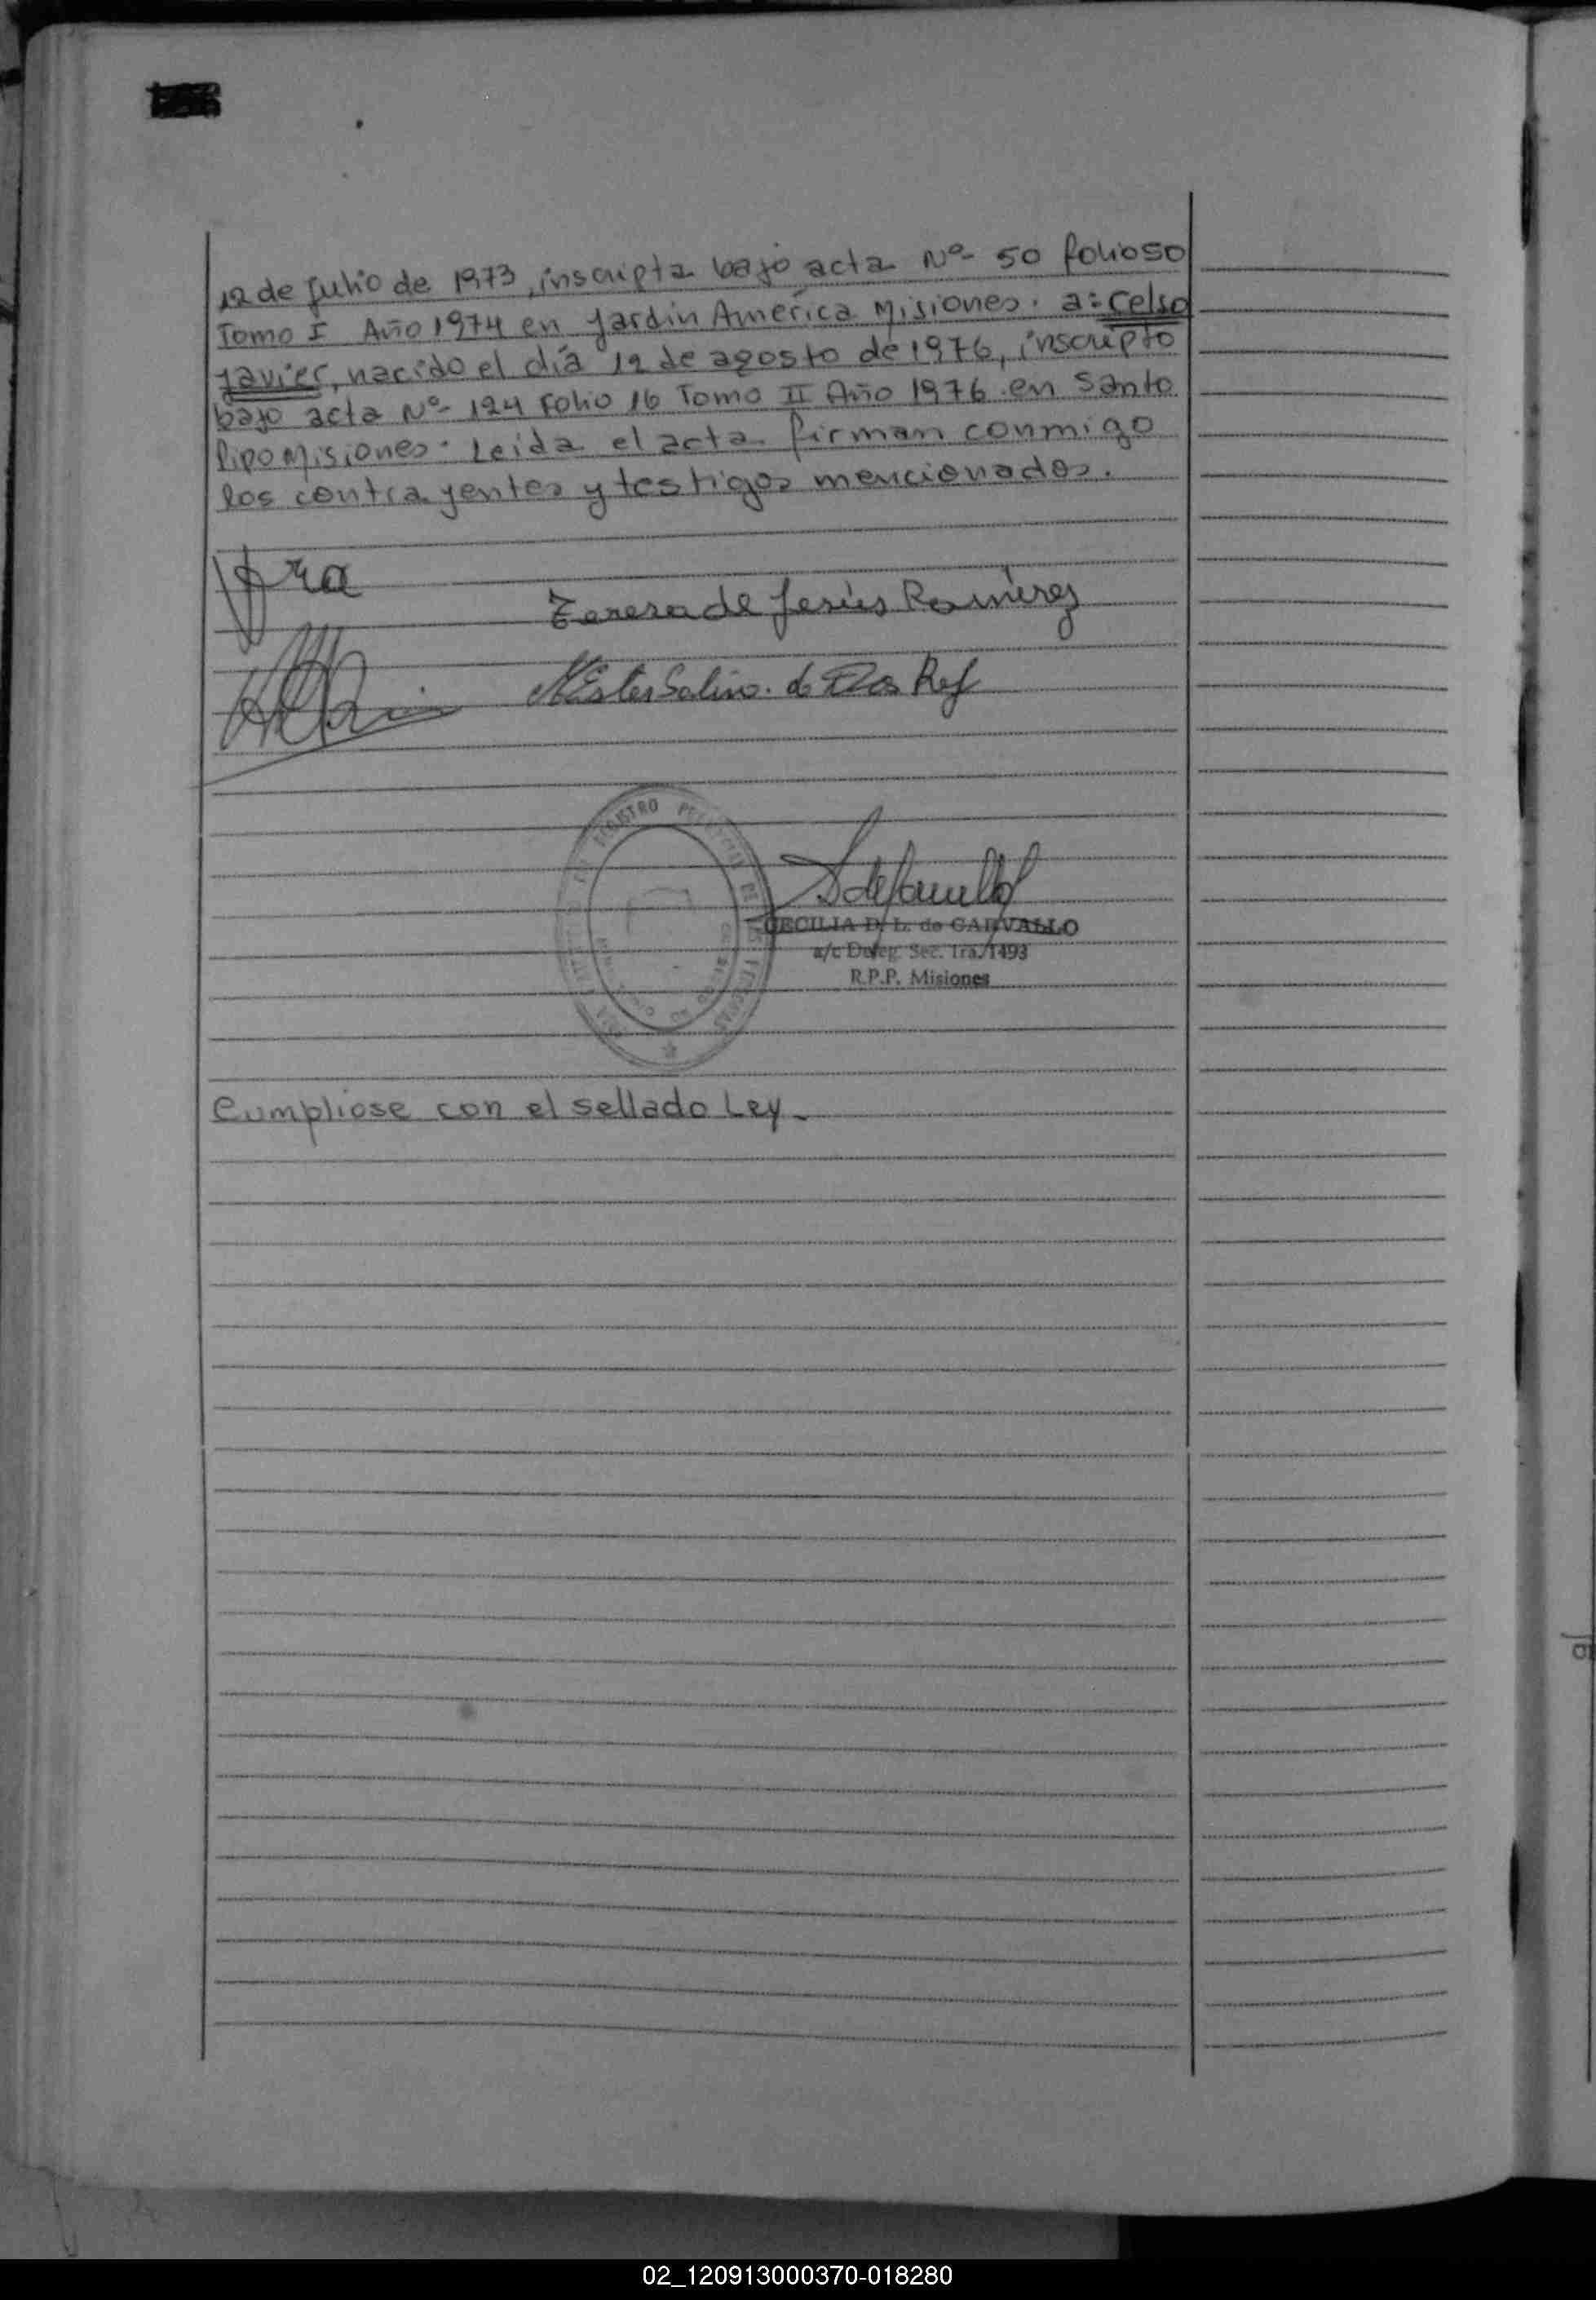 12 de Julio de 1973, inscripta bajo acta Nº 50 folio 50
Tomo I Año 1974 en Jardin América Misiones. a: Celso
Javier, nacido el día 12 de agosto de 1976, inscripto
bajo acta Nº 124 Folio 16 Tomo II Año 1976 en Santo
Pipo Misiones. Leida el acta firman conmigo
los contrayentes y testigos mencionados.
Teresa de Jesús Ramirez
CECILIA D. L. de CARVALLO
a/c Deleg. Sec. 1ra. 1493
R.P.P. Misiones
REGISTRO
Cumpliose con el sellado Ley.
02_120913000370-018280